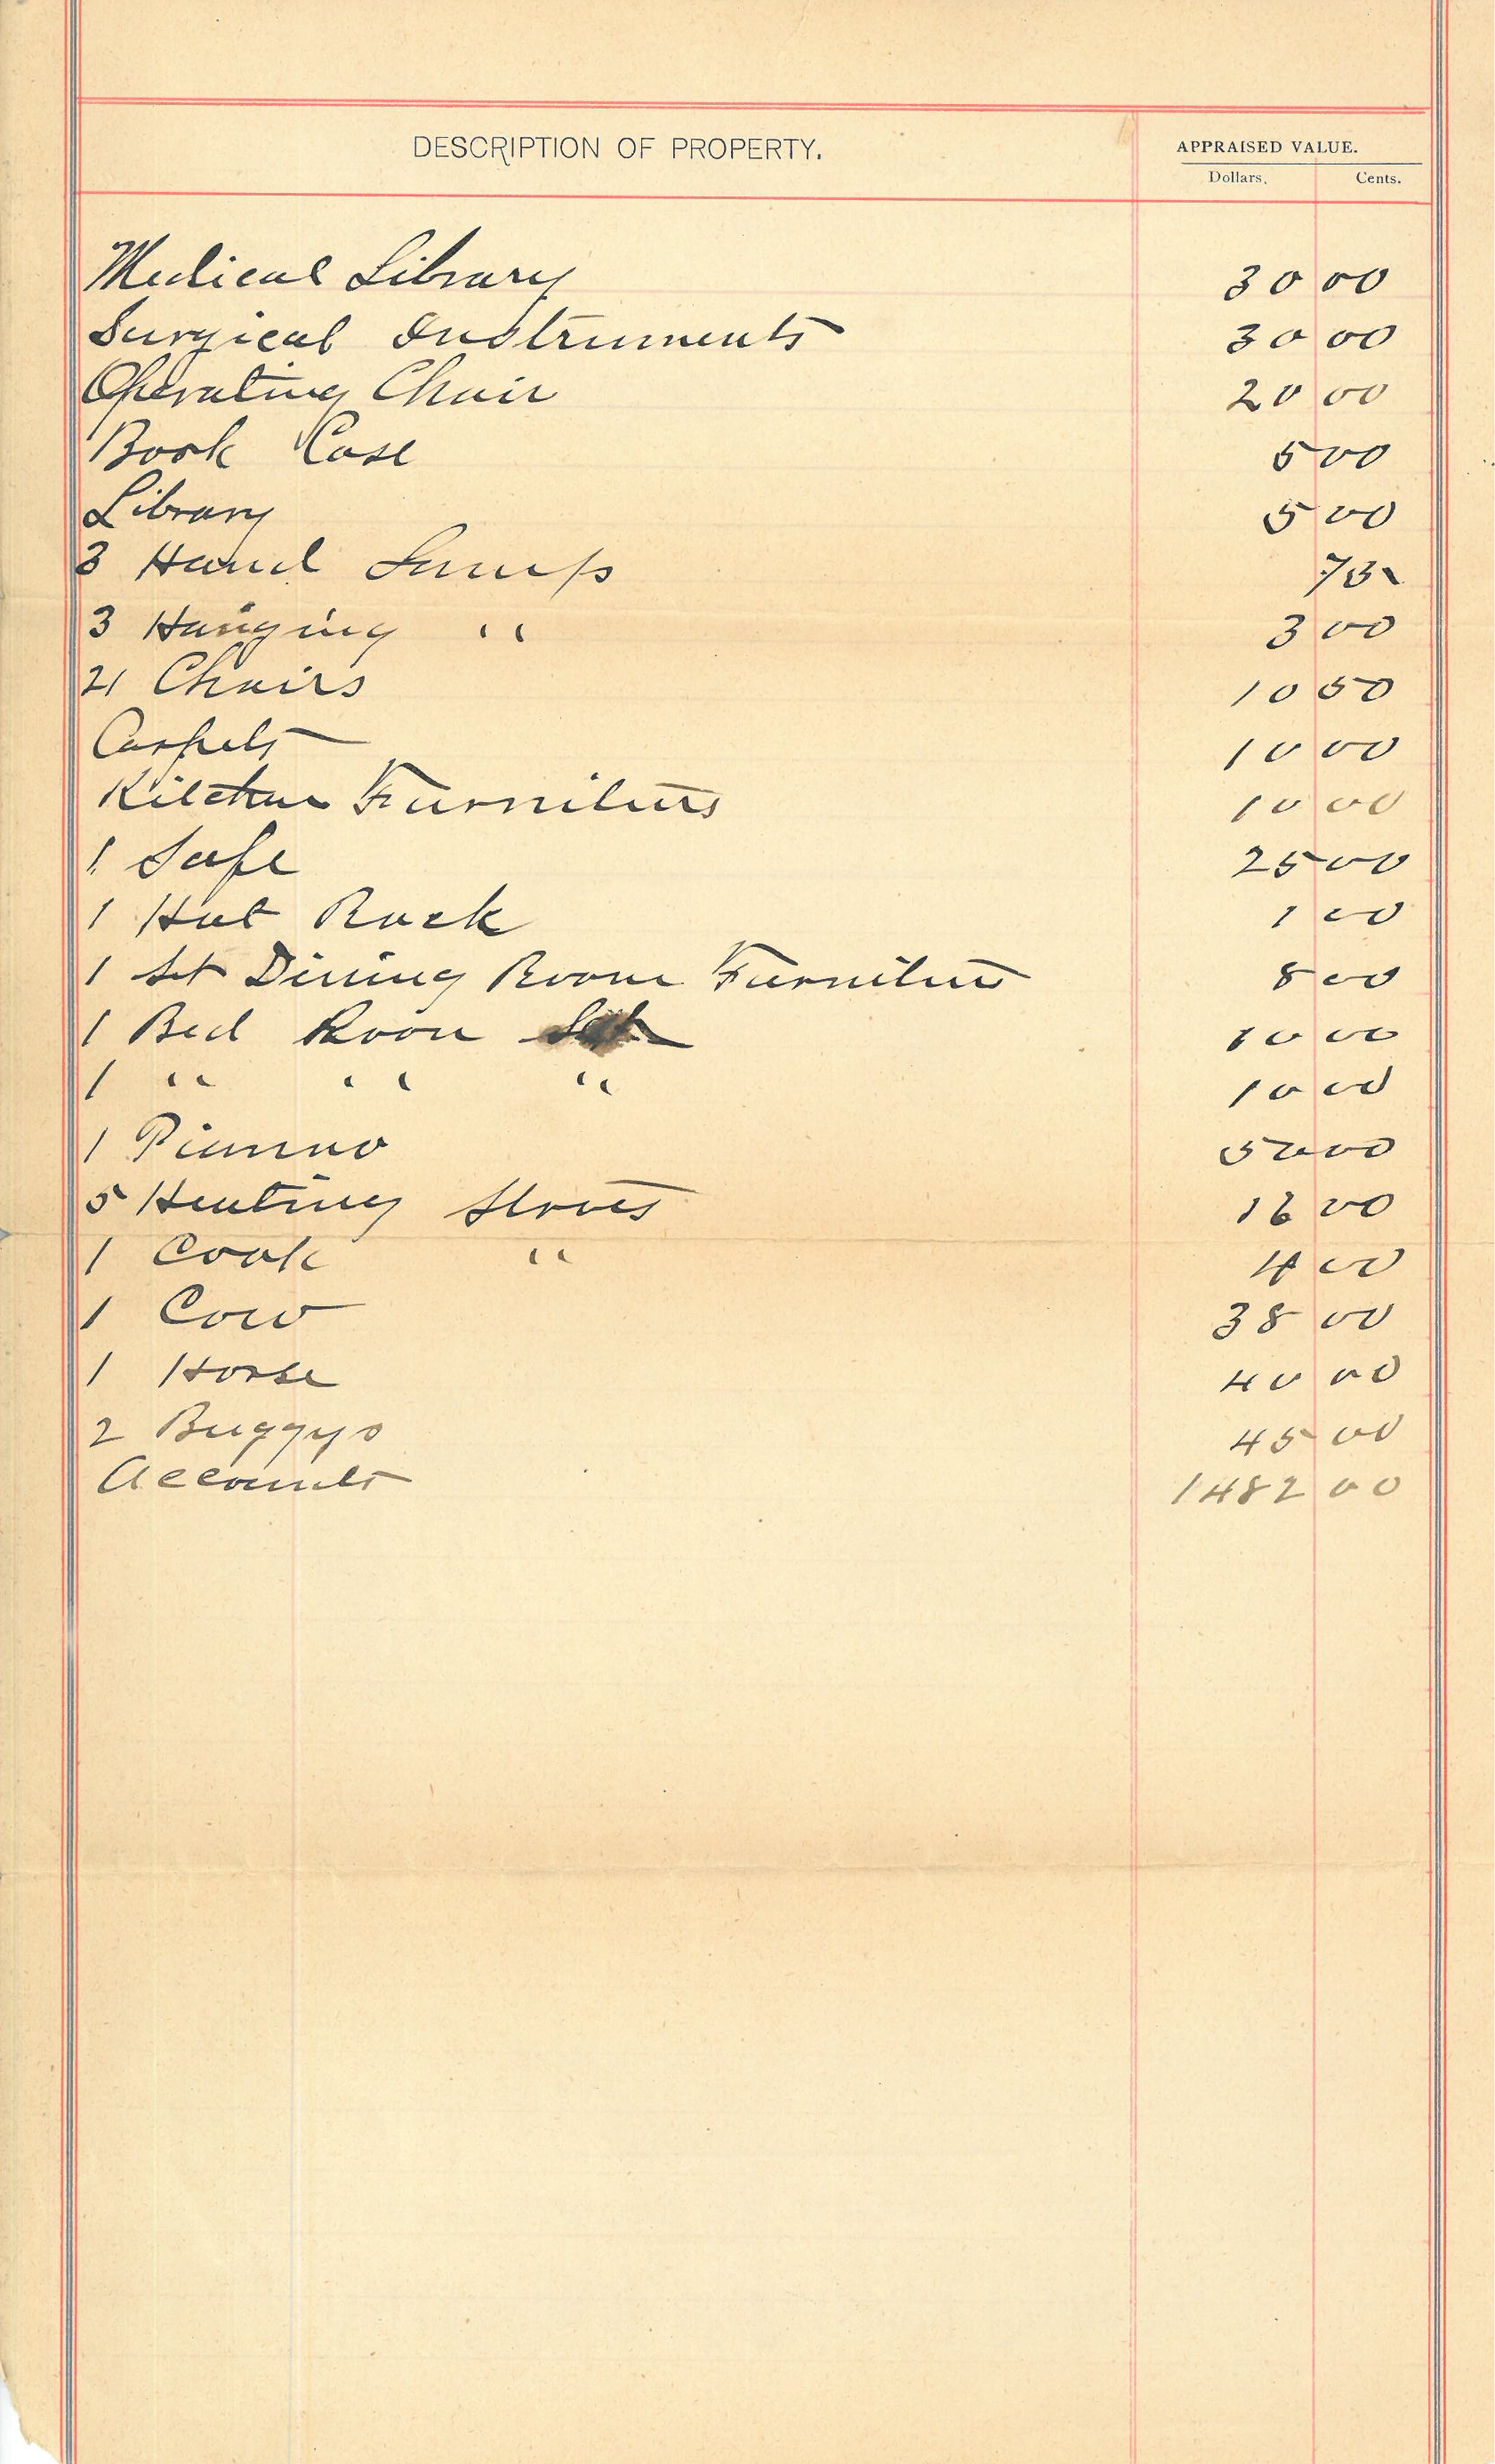 DESCRIPTION OF PROPERTY.
APPRAISED VALUE.
Dollars. Cents.
Medical Library 30 00
Surgical Instruments 30 00
Operating Chair 20 00
Book Case 5 00
Library 5 00
3 Hand Lamps 75
3 Hanging " 3 00
21 Chairs 10 50
Carpets 10 00
Kitchen Furniture 10 00
1 Safe 25 00
1 Hat Rack 1 00
1 Set Dining Room Furniture 8 00
1 Bed Room Set 10 00
1 " " " 10 00
1 Pianno 50 00
5 Heating Stoves 16 00
1 Cook " 4 00
1 Cow 38 00
1 Horse 40 00
2 Buggys 45 00
Accounts 1482 00